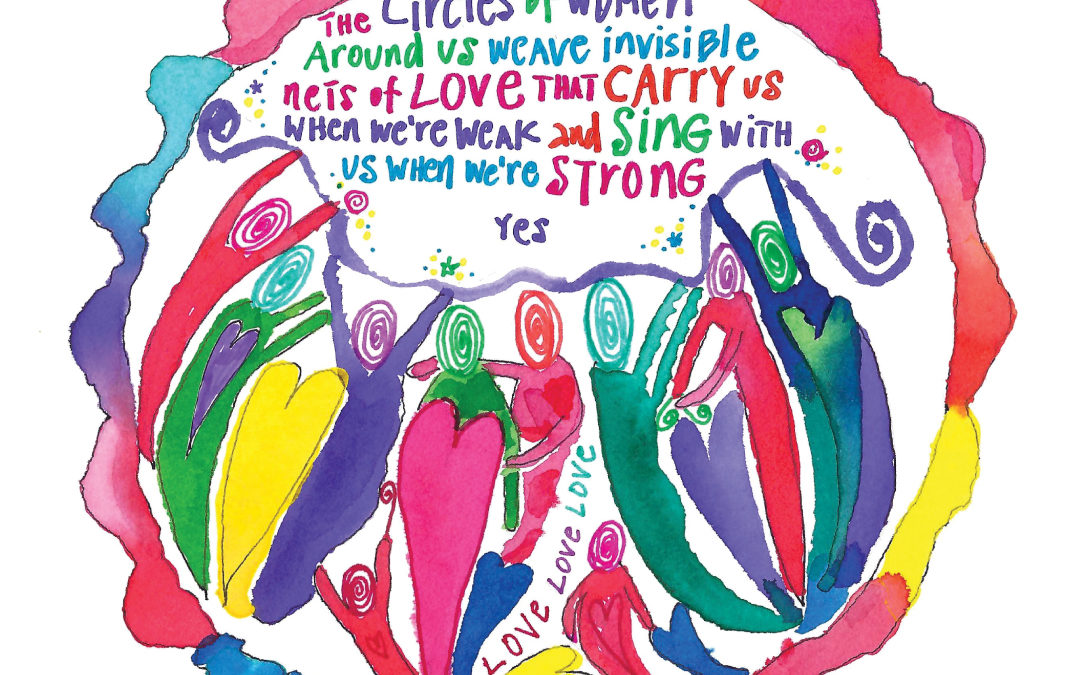 THE CIRCLES of WOMEN
Around us weave invisible
nets of LOVE THAT CARRY us
when we're weak and Sing with
us when we're STRONG
Yes
LOVE LOVE LOVE LOVE